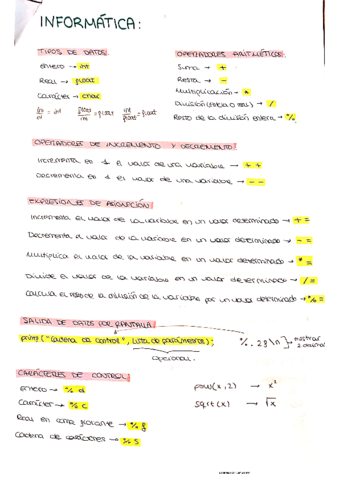 INFORMÁTICA:
TIPOS DE DATOS:
entero → int
Real → float
Carácter → char
int/int = int float/int = float int/float = float
OPERADORES ARITMÉTICOS:
Suma → +
Resta → -
Multiplicación → *
División (entera o real) → /
Resto de la división entera → %
OPERADORES DE INCREMENTO Y DECREMENTO:
Incrementa en 1 el valor de una variable → ++
Decrementa en 1 el valor de una variable → --
EXPRESIONES DE ASIGNACIÓN:
Incrementa el valor de la variable en un valor determinado → +=
Decrementa el valor de la variable en un valor determinado → -=
Multiplica el valor de la variable en un valor determinado → *=
Divide el valor de la variable en un valor determinado → /=
Calcula el resto de la división de la variable por un valor determinado → %=
SALIDA DE DATOS POR PANTALLA:
printf ("Cadena de control", lista de parámetros);
opcional.
%.2f\n } mostrar 2 decimal
CARÁCTERES DE CONTROL:
entero → %d
Carácter → %c
Real en coma flotante → %f
Cadena de carácteres → %s
pow(x,2) → x²
sqrt(x) → √x